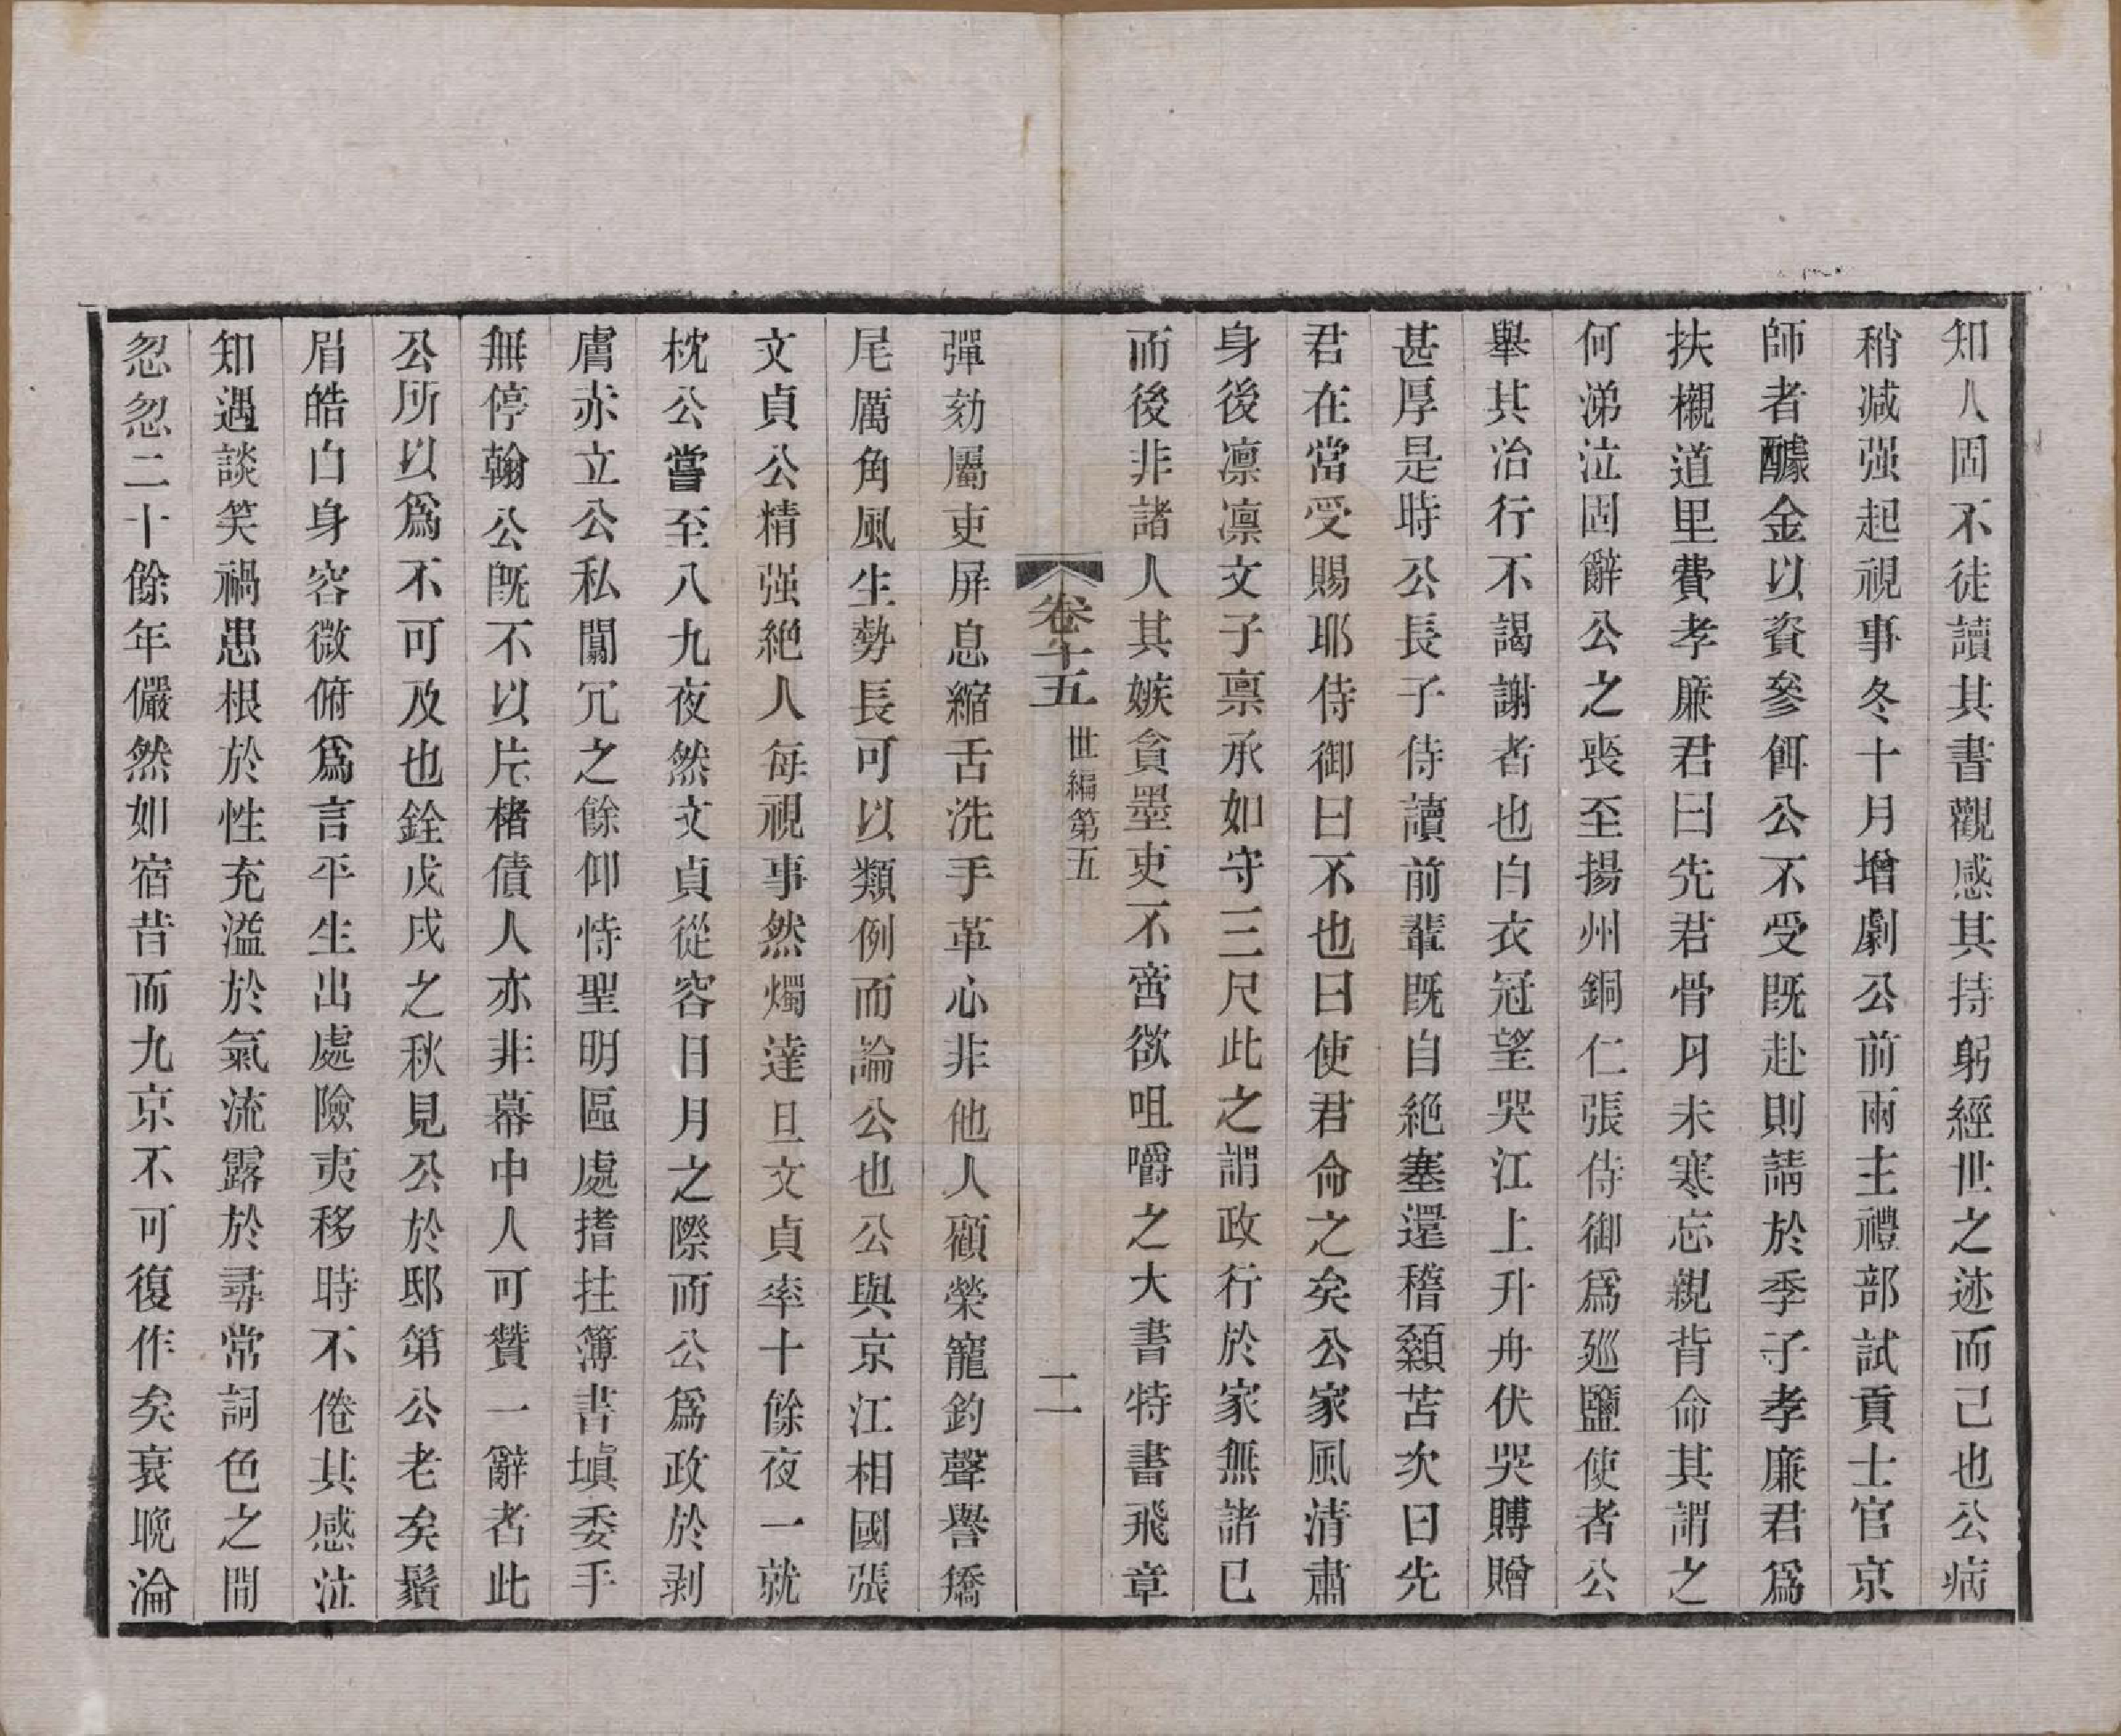 知人固不徒讀其書觀感其持躬經世之迹而己也公病
稍減强起視事冬十月增劇公前兩主禮部試貢士官京
師者醵金以資參餌公不受旣赴則請於季子孝廉君爲
扶櫬道里費孝廉君曰先君骨月未寒忘親背命其謂之
何涕泣固辭公之喪至揚州銅仁張侍御爲廵鹽使者公
舉其治行不謁謝者也白衣冠望哭江上升舟伏哭賻贈
甚厚是時公長子侍讀前輩旣自絶塞還稽顙苫次曰先
君在當受賜耶侍御曰不也曰使君命之矣公家風清肅
身後凛凛文子禀承如守三尺此之謂政行於家無諸已
而後非諸人其嫉貪墨吏不啻欲咀嚼之大書特書飛章
卷十五 世編第五 二
彈劾屬吏屏息縮舌洗手革心非他人顧榮寵釣聲譽撟
尾厲角風生勢長可以類例而論公也公與京江相國張
文貞公精强絶人每視事然燭達旦文貞率十餘夜一就
枕公嘗至八九夜然文貞從容日月之際而公爲政於剥
膚赤立公私闒冗之餘仰恃聖明區處搘拄簿書塡委手
無停翰公旣不以片楮債人亦非幕中人可贊一辭者此
公所以爲不可及也銓戊戌之秋見公於邸第公老矣鬚
眉皓白身容微俯爲言平生出處險夷移時不倦其感泣
知遇談笑禍患根於性充溢於氣流露於尋常詞色之間
忽忽二十餘年儼然如宿昔而九京不可復作矣衰晚淪